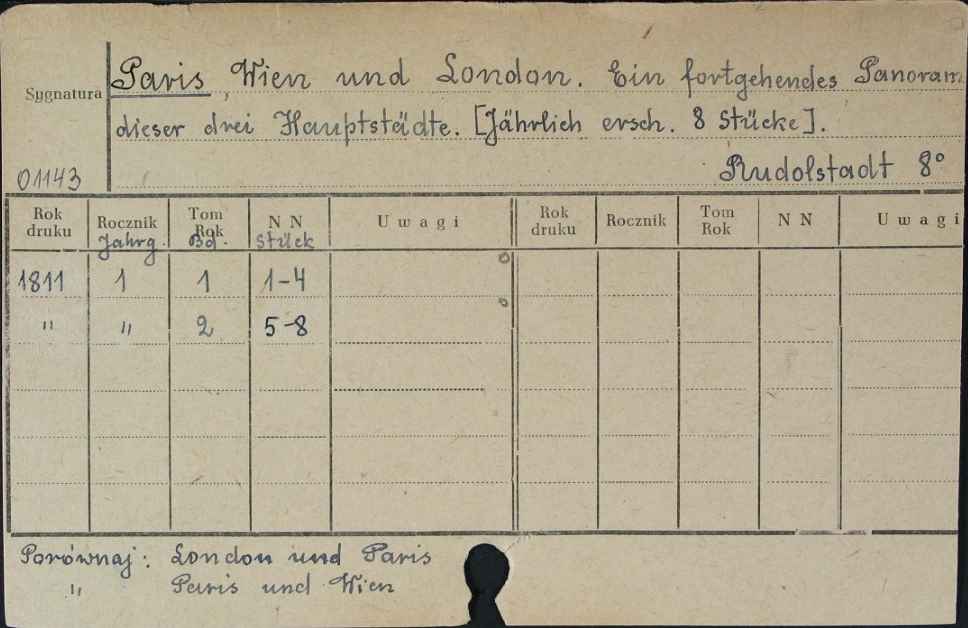 Paris, Wien und London. Ein fortgehendes Panoram
Sygnatura
dieser drei Hauptstädte. [Jährlich ersch. 8 Stücke].
01143
Rudolstadt 8°
Rok druku Rocznik Tom Rok N N Uwagi Rok druku Rocznik Tom Rok N N Uwagi
Jahrg. Bd. Stück
1811 1 1 1-4
" " 2 5-8
Porównaj: London und Paris
" Paris und Wien